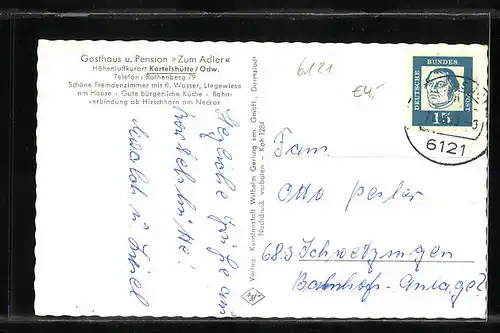 Gasthaus u. Pension »Zum Adler«
Höhenluftkurort Kortelshütte/Odw.
Telefon: Rothenberg 79
Schöne Fremdenzimmer mit fl. Wasser, Liegewiese
am Hause · Gute bürgerliche Küche · Bahn-
verbindung ab Hirschhorn am Neckar
Herzliche Grüße aus
Kortelshütte!
Verlag: Kunstanstalt Wilhelm Gerling sen. GmbH., Darmstadt
Nachdruck verboten - Koh 1284
6121
€4,-
DEUTSCHE
BUNDES
POST
15
6121
Fam.
Otto
683 Schwetzingen
Bahnhof-Anlage